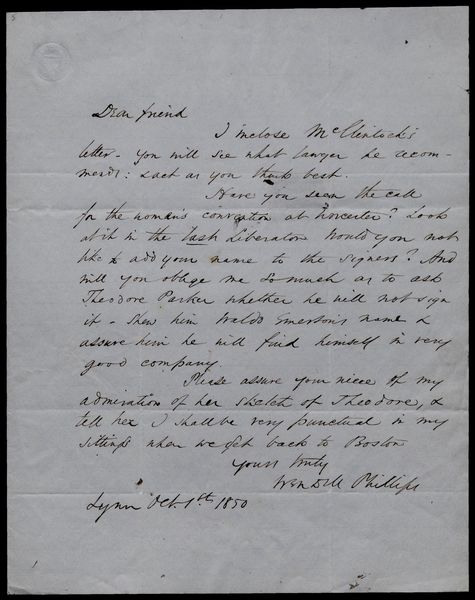 5
Dear friend
I inclose McClintock's
letter - you will see what lawyer he recom-
mends: & act as you think best.
Have you seen the call
for the woman's convention at Worcester? Look
at it in the last Liberator. Would you not
like to add your name to the signers? And
will you oblige me so much as to ask
Theodore Parker whether he will not sign
it - Shew him Waldo Emerson's name &
assure him he will find himself in very
good company.
Please assure your niece of my
admiration of her sketch of Theodore, &
tell her I shall be very punctual in my
sittings when we get back to Boston
Yours truly
Wendell Phillips
Lynn Oct. 1st 1850